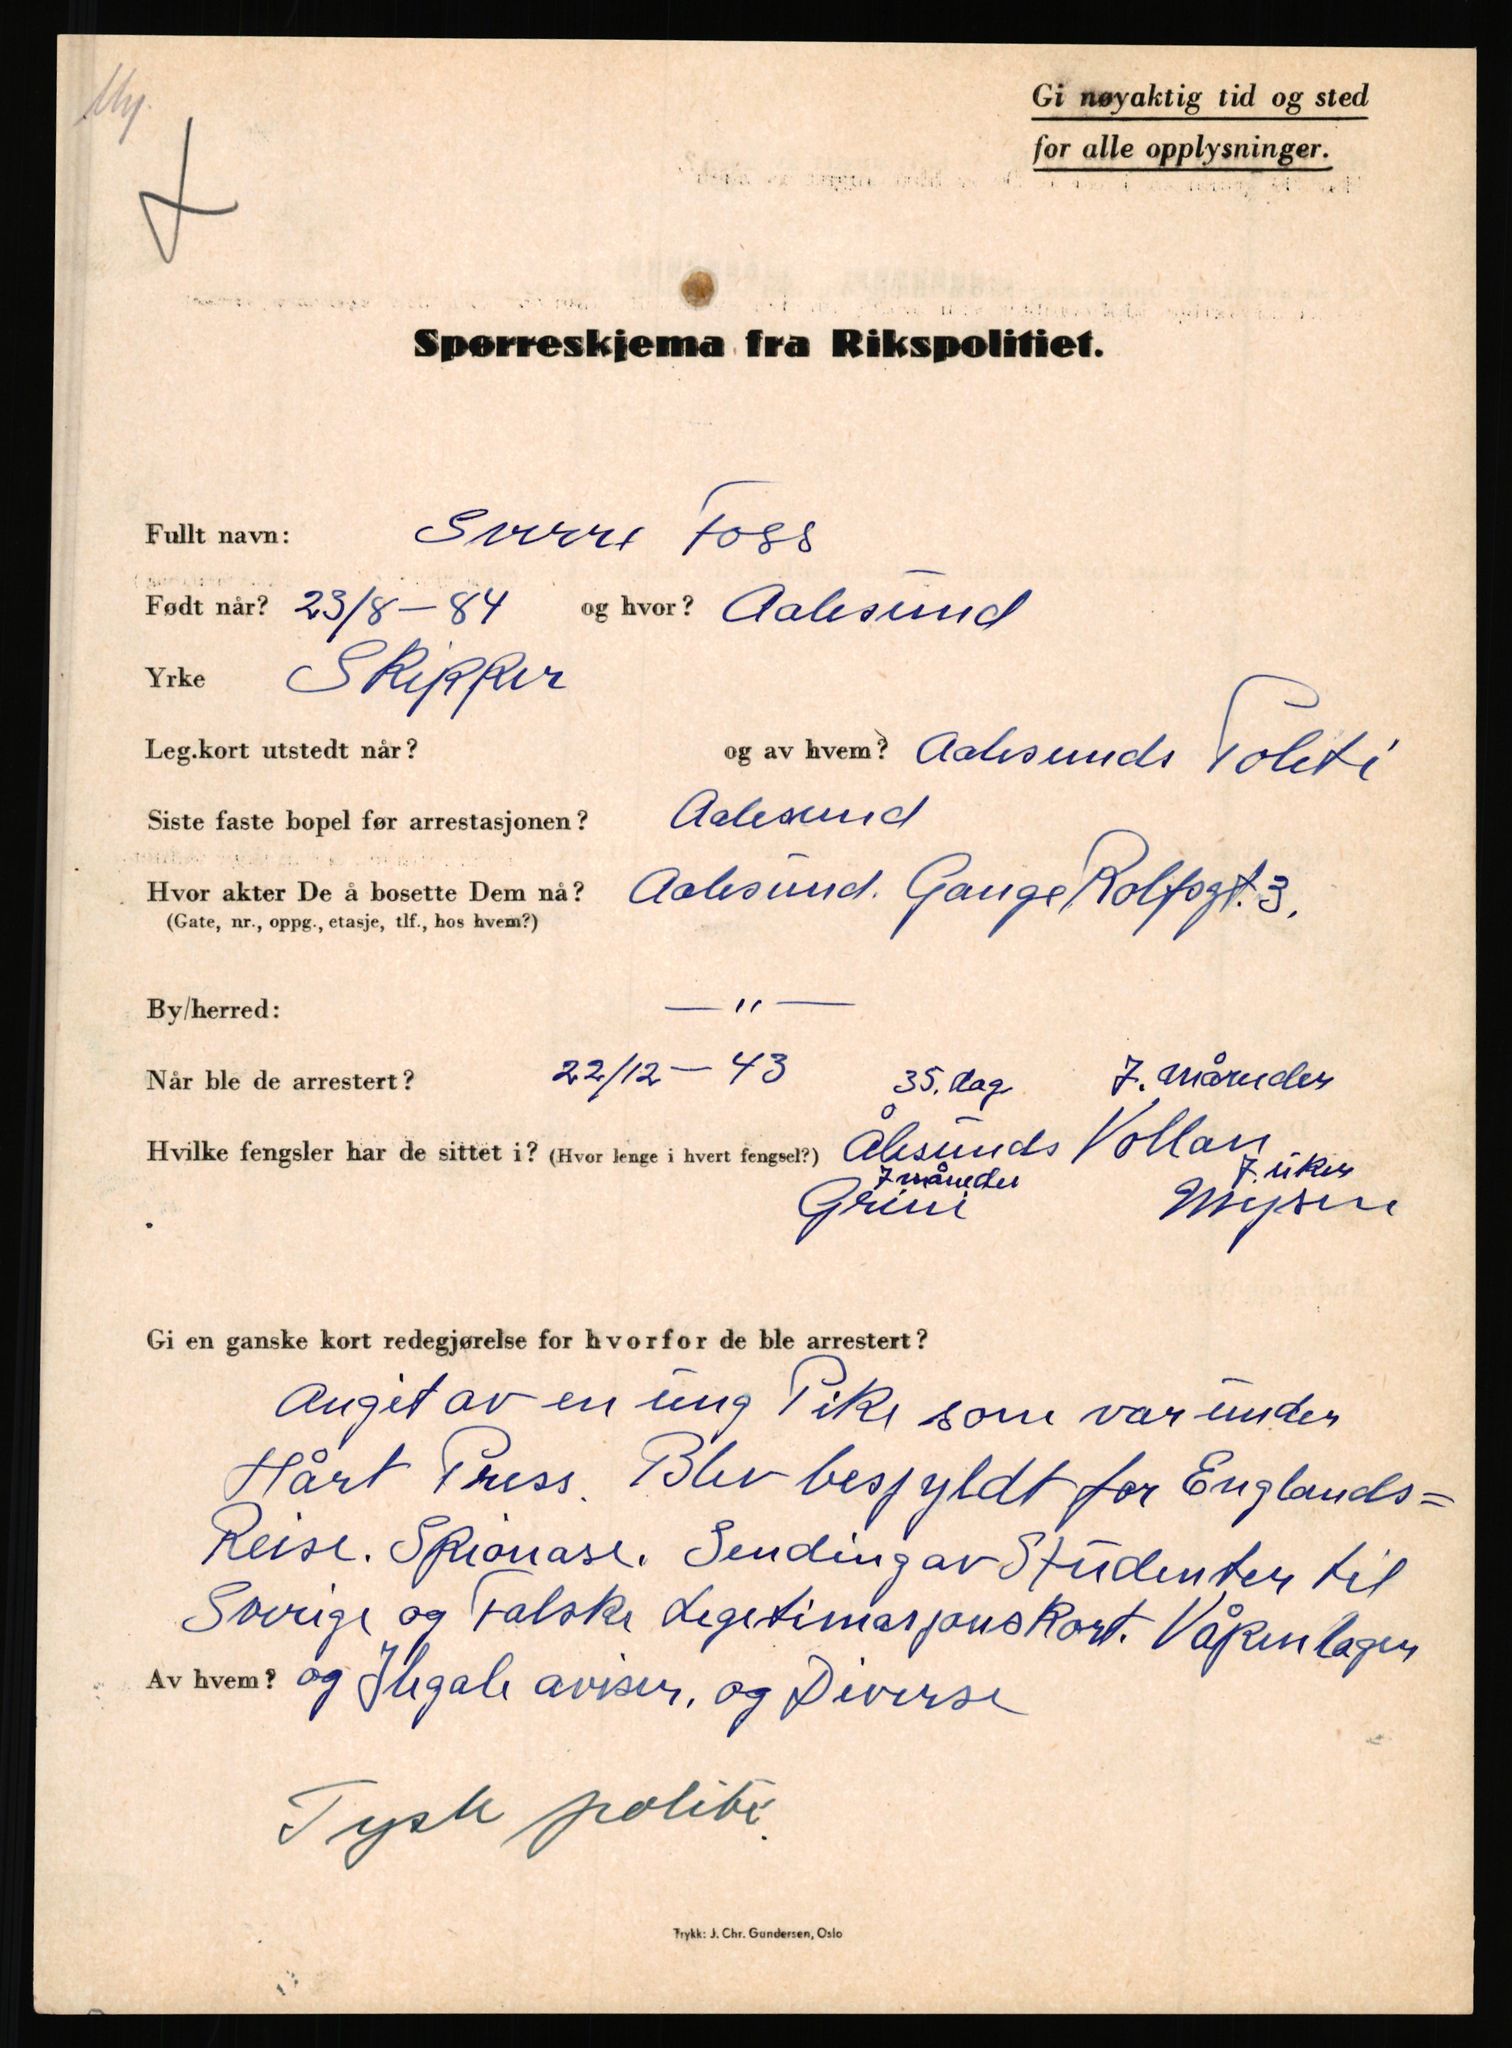 Gi nøyaktig tid og sted
for alle opplysninger.
Spørreskjema fra Rikspolitiet.
Fullt navn: Sverre Foss
Født når? 23/8 — 84 og hvor? Aalesund
Yrke Skipper
Leg.kort utstedt når? og av hvem? Aalesunds Politi
Siste faste bopel før arrestasjonen? Aalesund
Hvor akter De å bosette Dem nå? Aalesund. Gange Rolfsgt. 3.
(Gate, nr., oppg., etasje, tlf., hos hvem?)
By/herred: — " —
Når ble de arrestert? 22/12 — 43 35. dag 7. måneder
Hvilke fengsler har de sittet i? (Hvor lenge i hvert fengsel?) Ålesunds Vollan
7 måneder 7. uker
Grini Mysen
Gi en ganske kort redegjørelse for hvorfor de ble arrestert?
Angit av en ung Pike som var under
Hårt Press. Blev beskyldt for Englands=
Reise. Spionase. Sending av Studenter til
Sverige og Falske Legetimasjonskort. Våpenlager
Av hvem? og Ilegale aviser. og Diverse
Tysk politi.
Trykk: J. Chr. Gundersen, Oslo